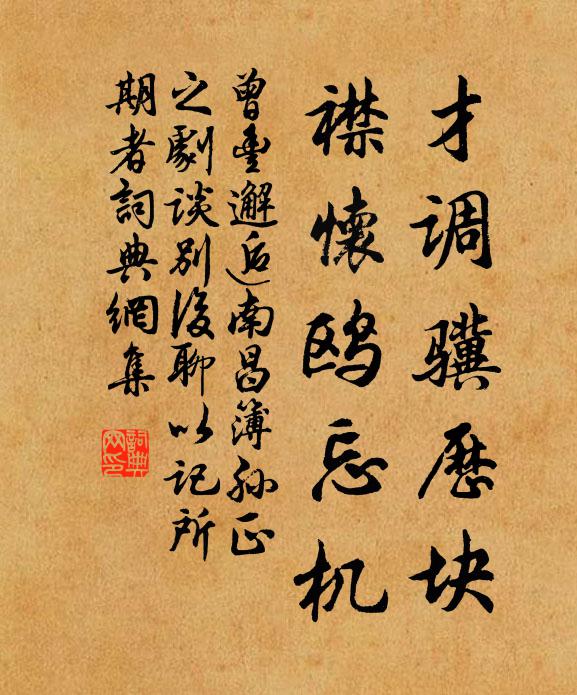 才调骥历块
襟懷鸥忘机
曾豐邂逅南昌簿孙正
之劇談别後聊以记所
期者詞典網集
詞典
网印